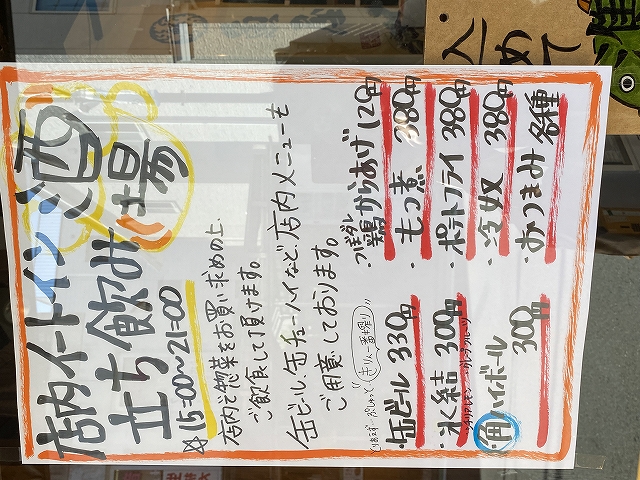 店内イートイン酒
立ち飲み場
※15:00〜21:00
店内で惣菜をお買い求めの上、
ご飲食して頂けます。
缶ビール、缶チューハイなど、店内メニューを
ご用意しております。
とりあえず ぷしゅっと
キリン一番搾り
・缶ビール 330円
・氷結 300円
シチリアレモン グレープフルーツ
・角ハイボール
300円
・鶏からあげ 120円
・もつ煮 380円
・ポテトフライ 380円
・冷奴 380円
・おつまみ 各種